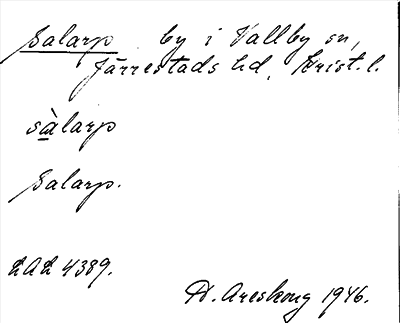 Salarp by i Vallby sn,
Järrestads hd, Krist. l.
sàlarp
Salarp.
LAL 4389.
H. Areskoug 1946.